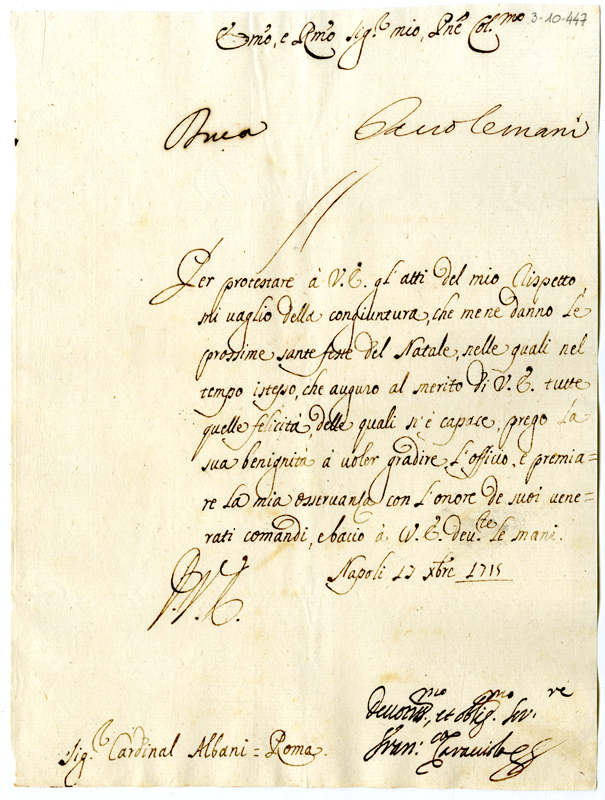 3-10-447
Emo, e Rmo Sig.r mio, Pne Col.mo
Buca
Per protestare à V.E. gl'atti del mio Rispetto,
mi vaglio della congiuntura, che mene danno le
prossime sante feste del Natale, nelle quali nel
tempo istesso, che auguro al merito di V.E. tutte
quelle felicità, delle quali n'è capace, prego la
sua benignità à voler gradire l'offizio, e premia=
re la mia osservanza con l'onore de suoi vene=
rati comandi, e bacio à V.E. deu.te le mani.
Napoli 17 Xbre 1715
Sig.r Cardinal Albani = Roma.
Deuotis.mo, et oblig.mo Ser.re
Fran.co